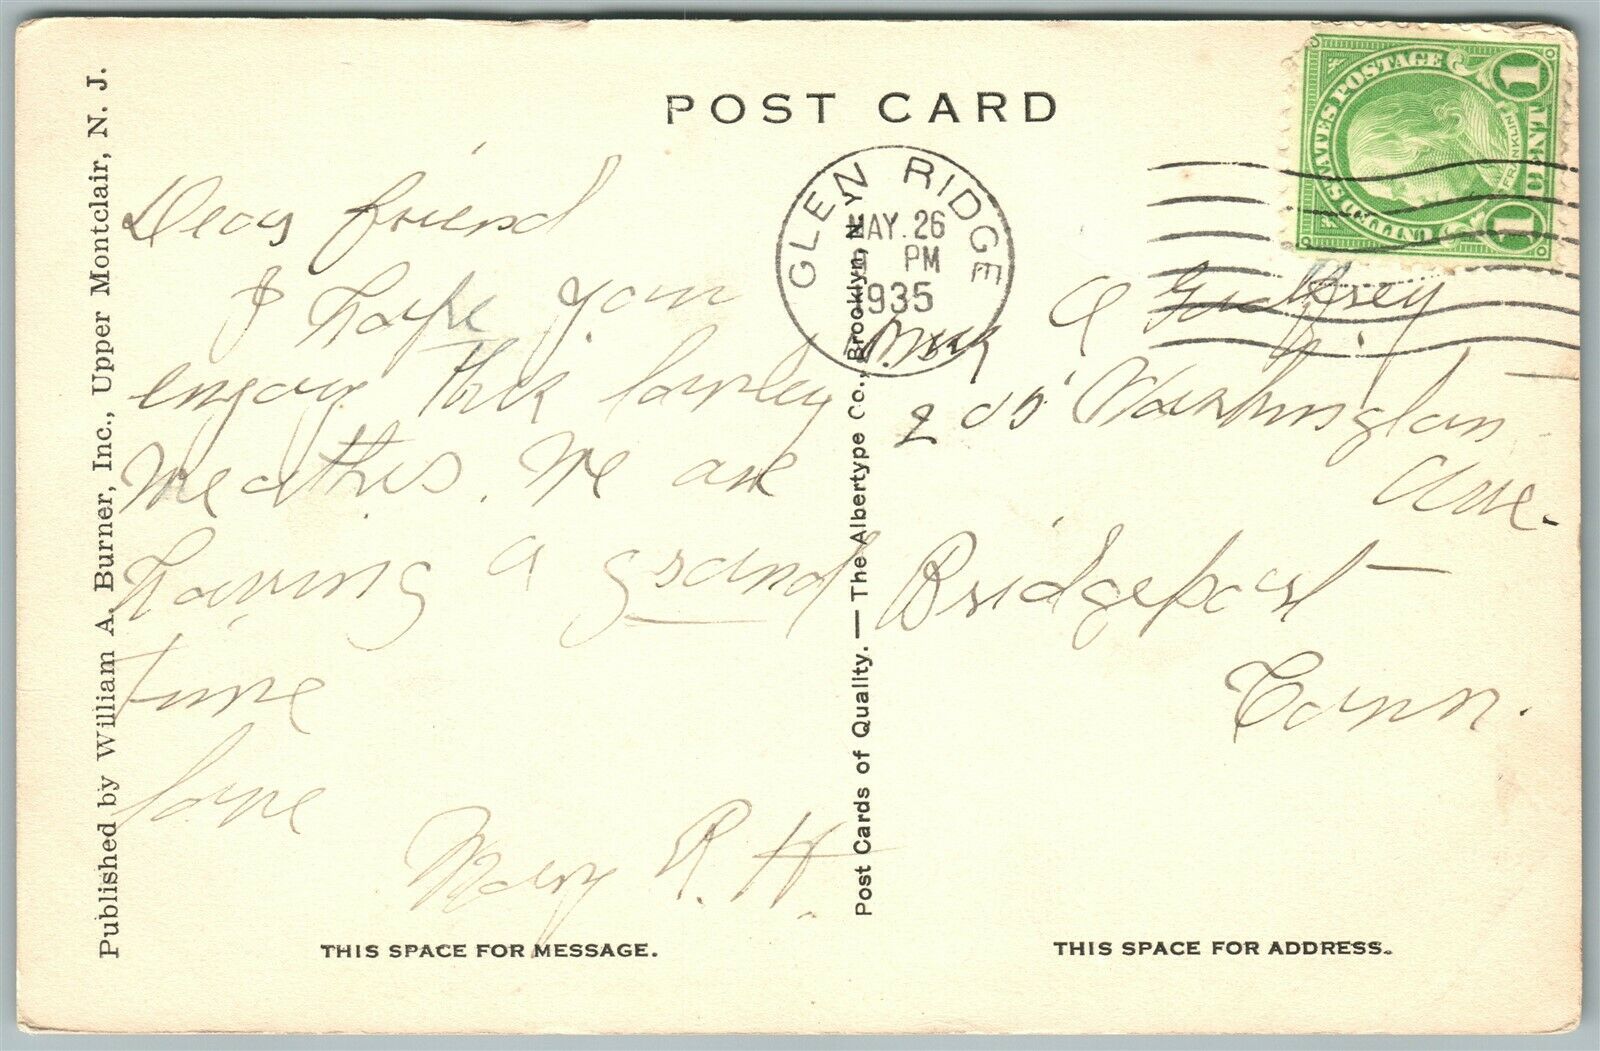 POST CARD
Published by William A. Burner, Inc., Upper Montclair, N. J.
Dear friend
I hope you
enjoy this lovley
Weather. We are
having a grand
time
love
Mary R. H.
THIS SPACE FOR MESSAGE.
Post Cards of Quality. — The Albertype Co., Brooklyn, N. Y.
GLEN RIDGE
MAY. 26
PM
1935
UNITED STATES POSTAGE
FRANKLIN
1 CENT 1
A Godfrey
205 Washington
Ave.
Bridgeport
Conn.
THIS SPACE FOR ADDRESS.